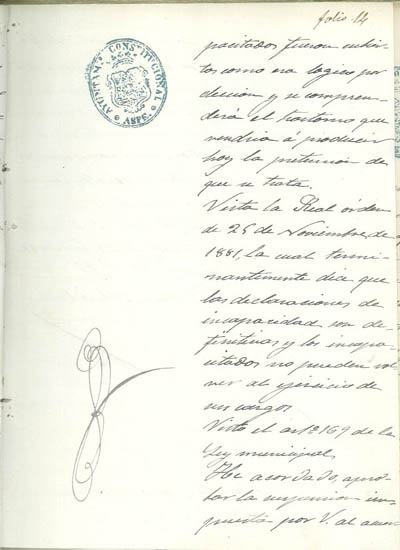 folio 14
AYUNTAM. CONSTITUCIONAL
pacitados fueron cubier-
tos como era logico por
eleccion y se compren-
derá el trastorno que
vendria á producir
hoy la pretension de
que se trata.
Vista la Real órden
de 25 de Noviembre de
1881, la cual termi-
nantemente dice que
las declaraciones de
incapacidad son de-
finitivas y los incapa-
citados no pueden vol-
ver al ejercicio de
sus cargos
Visto el artº 169 de la
Ley municipal
He acordado, apro-
bar la suspension im-
puesta por V. al acuer-